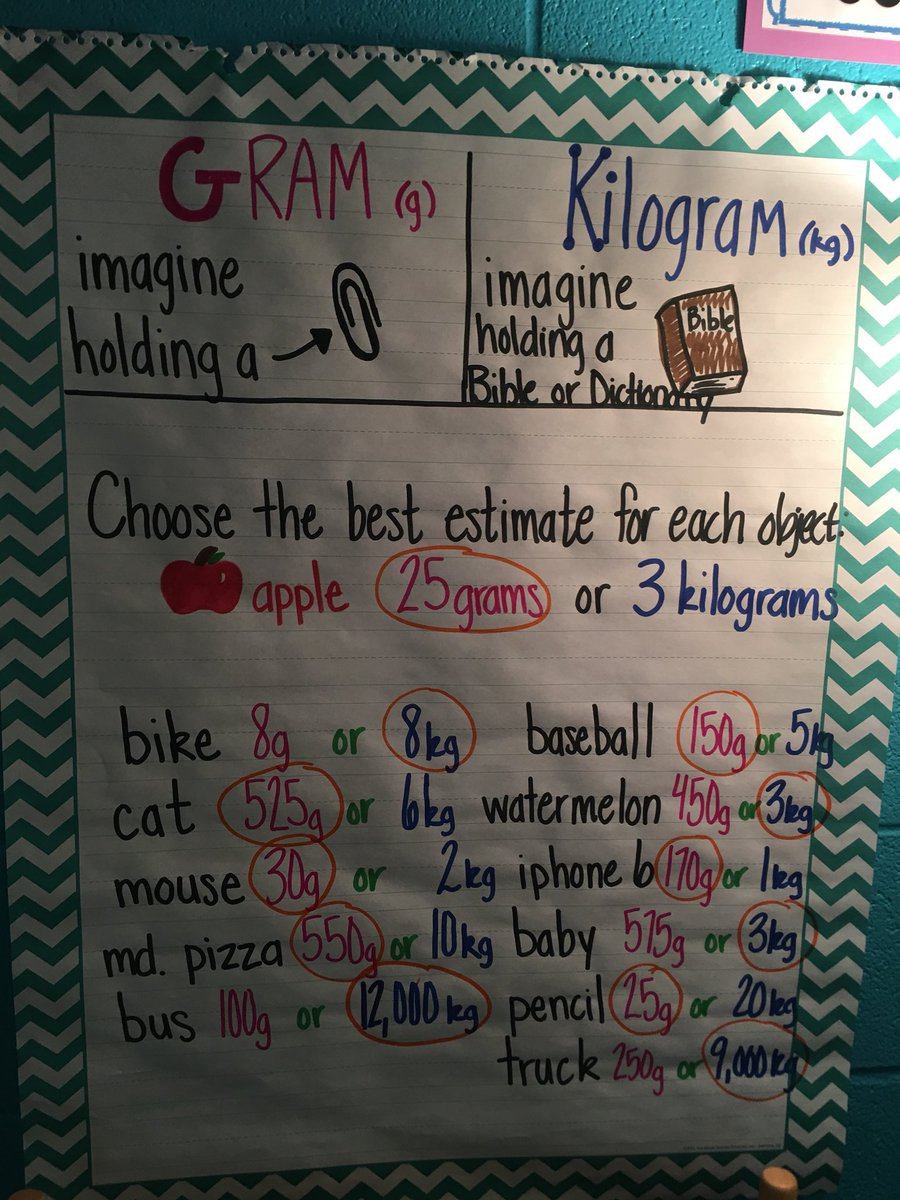 GRAM (g)
imagine
holding a
Kilogram (kg)
imagine
holding a
Bible or Dictionary
Bible
Choose the best estimate for each object:
apple 25 grams or 3 kilograms
bike 8g or 8kg
cat 525g or 6kg
mouse 30g or 2kg
md. pizza 550g or 10kg
bus 100g or 12,000 kg
baseball 150g or 5kg
watermelon 450g or 3kg
iphone 6 170g or 1kg
baby 575g or 3kg
pencil 25g or 20kg
truck 250g or 9,000 kg